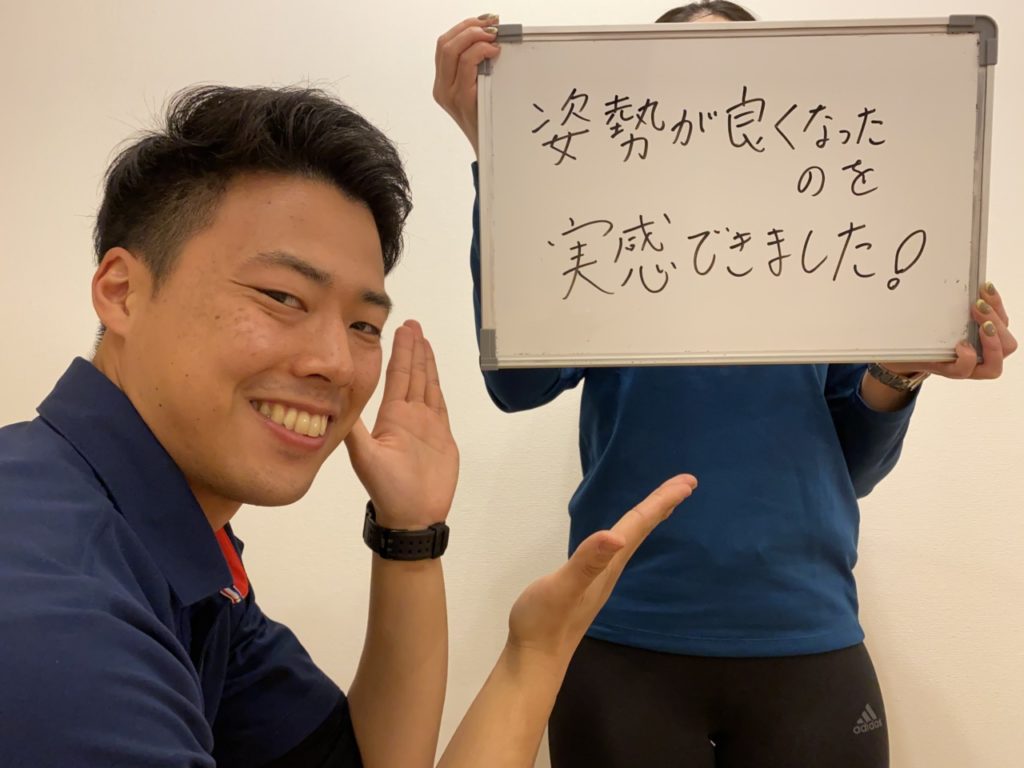 姿勢が良くなった
のを
実感できました!
adidas